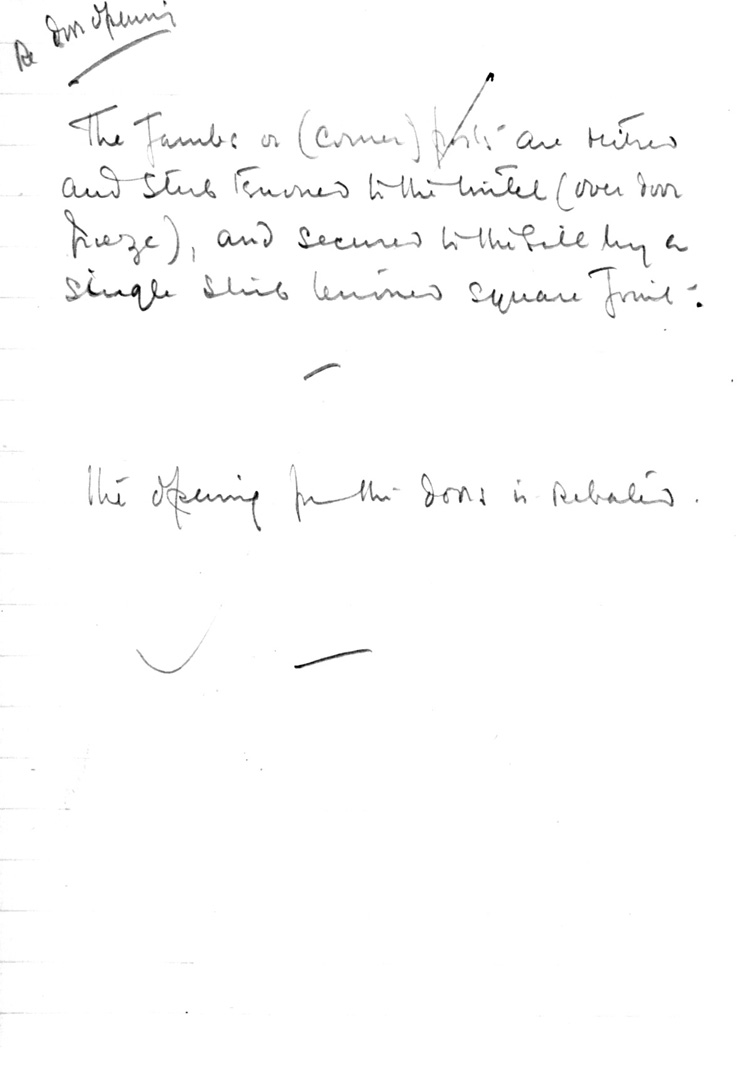 Re Door Opening
The Jambs or (corner) posts are mitred
and stub tenoned to the lintel (over door
frieze), and secured to the sill by a
single stub tenoned square joint.
The opening for the doors is rebated.